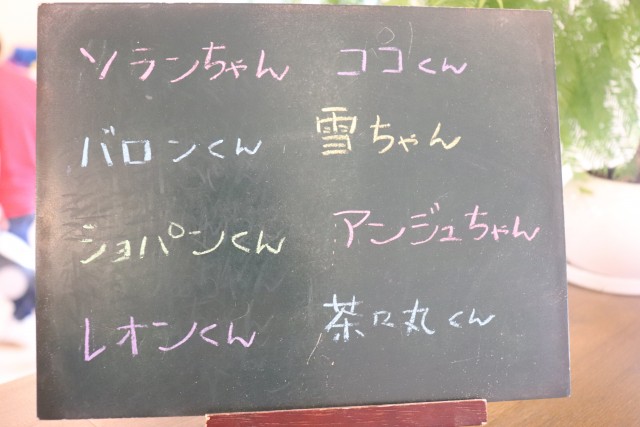 ソランちゃん ココくん
バロンくん 雪ちゃん
ショパンくん アンジュちゃん
レオンくん 茶々丸くん